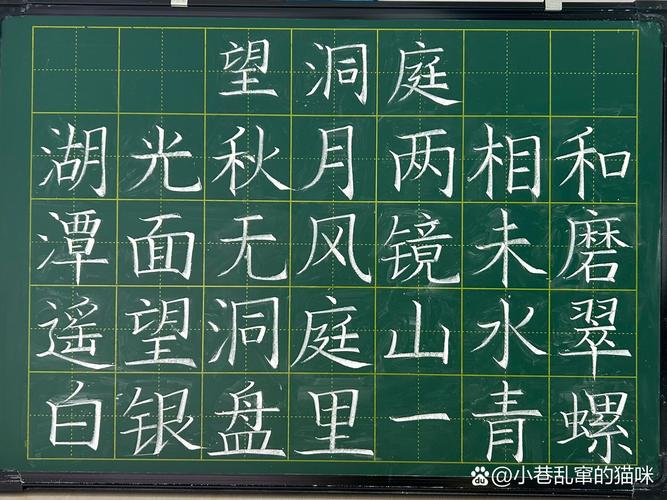 望洞庭
湖光秋月两相和
潭面无风镜未磨
遥望洞庭山水翠
白银盘里一青螺
@小巷乱窜的猫咪